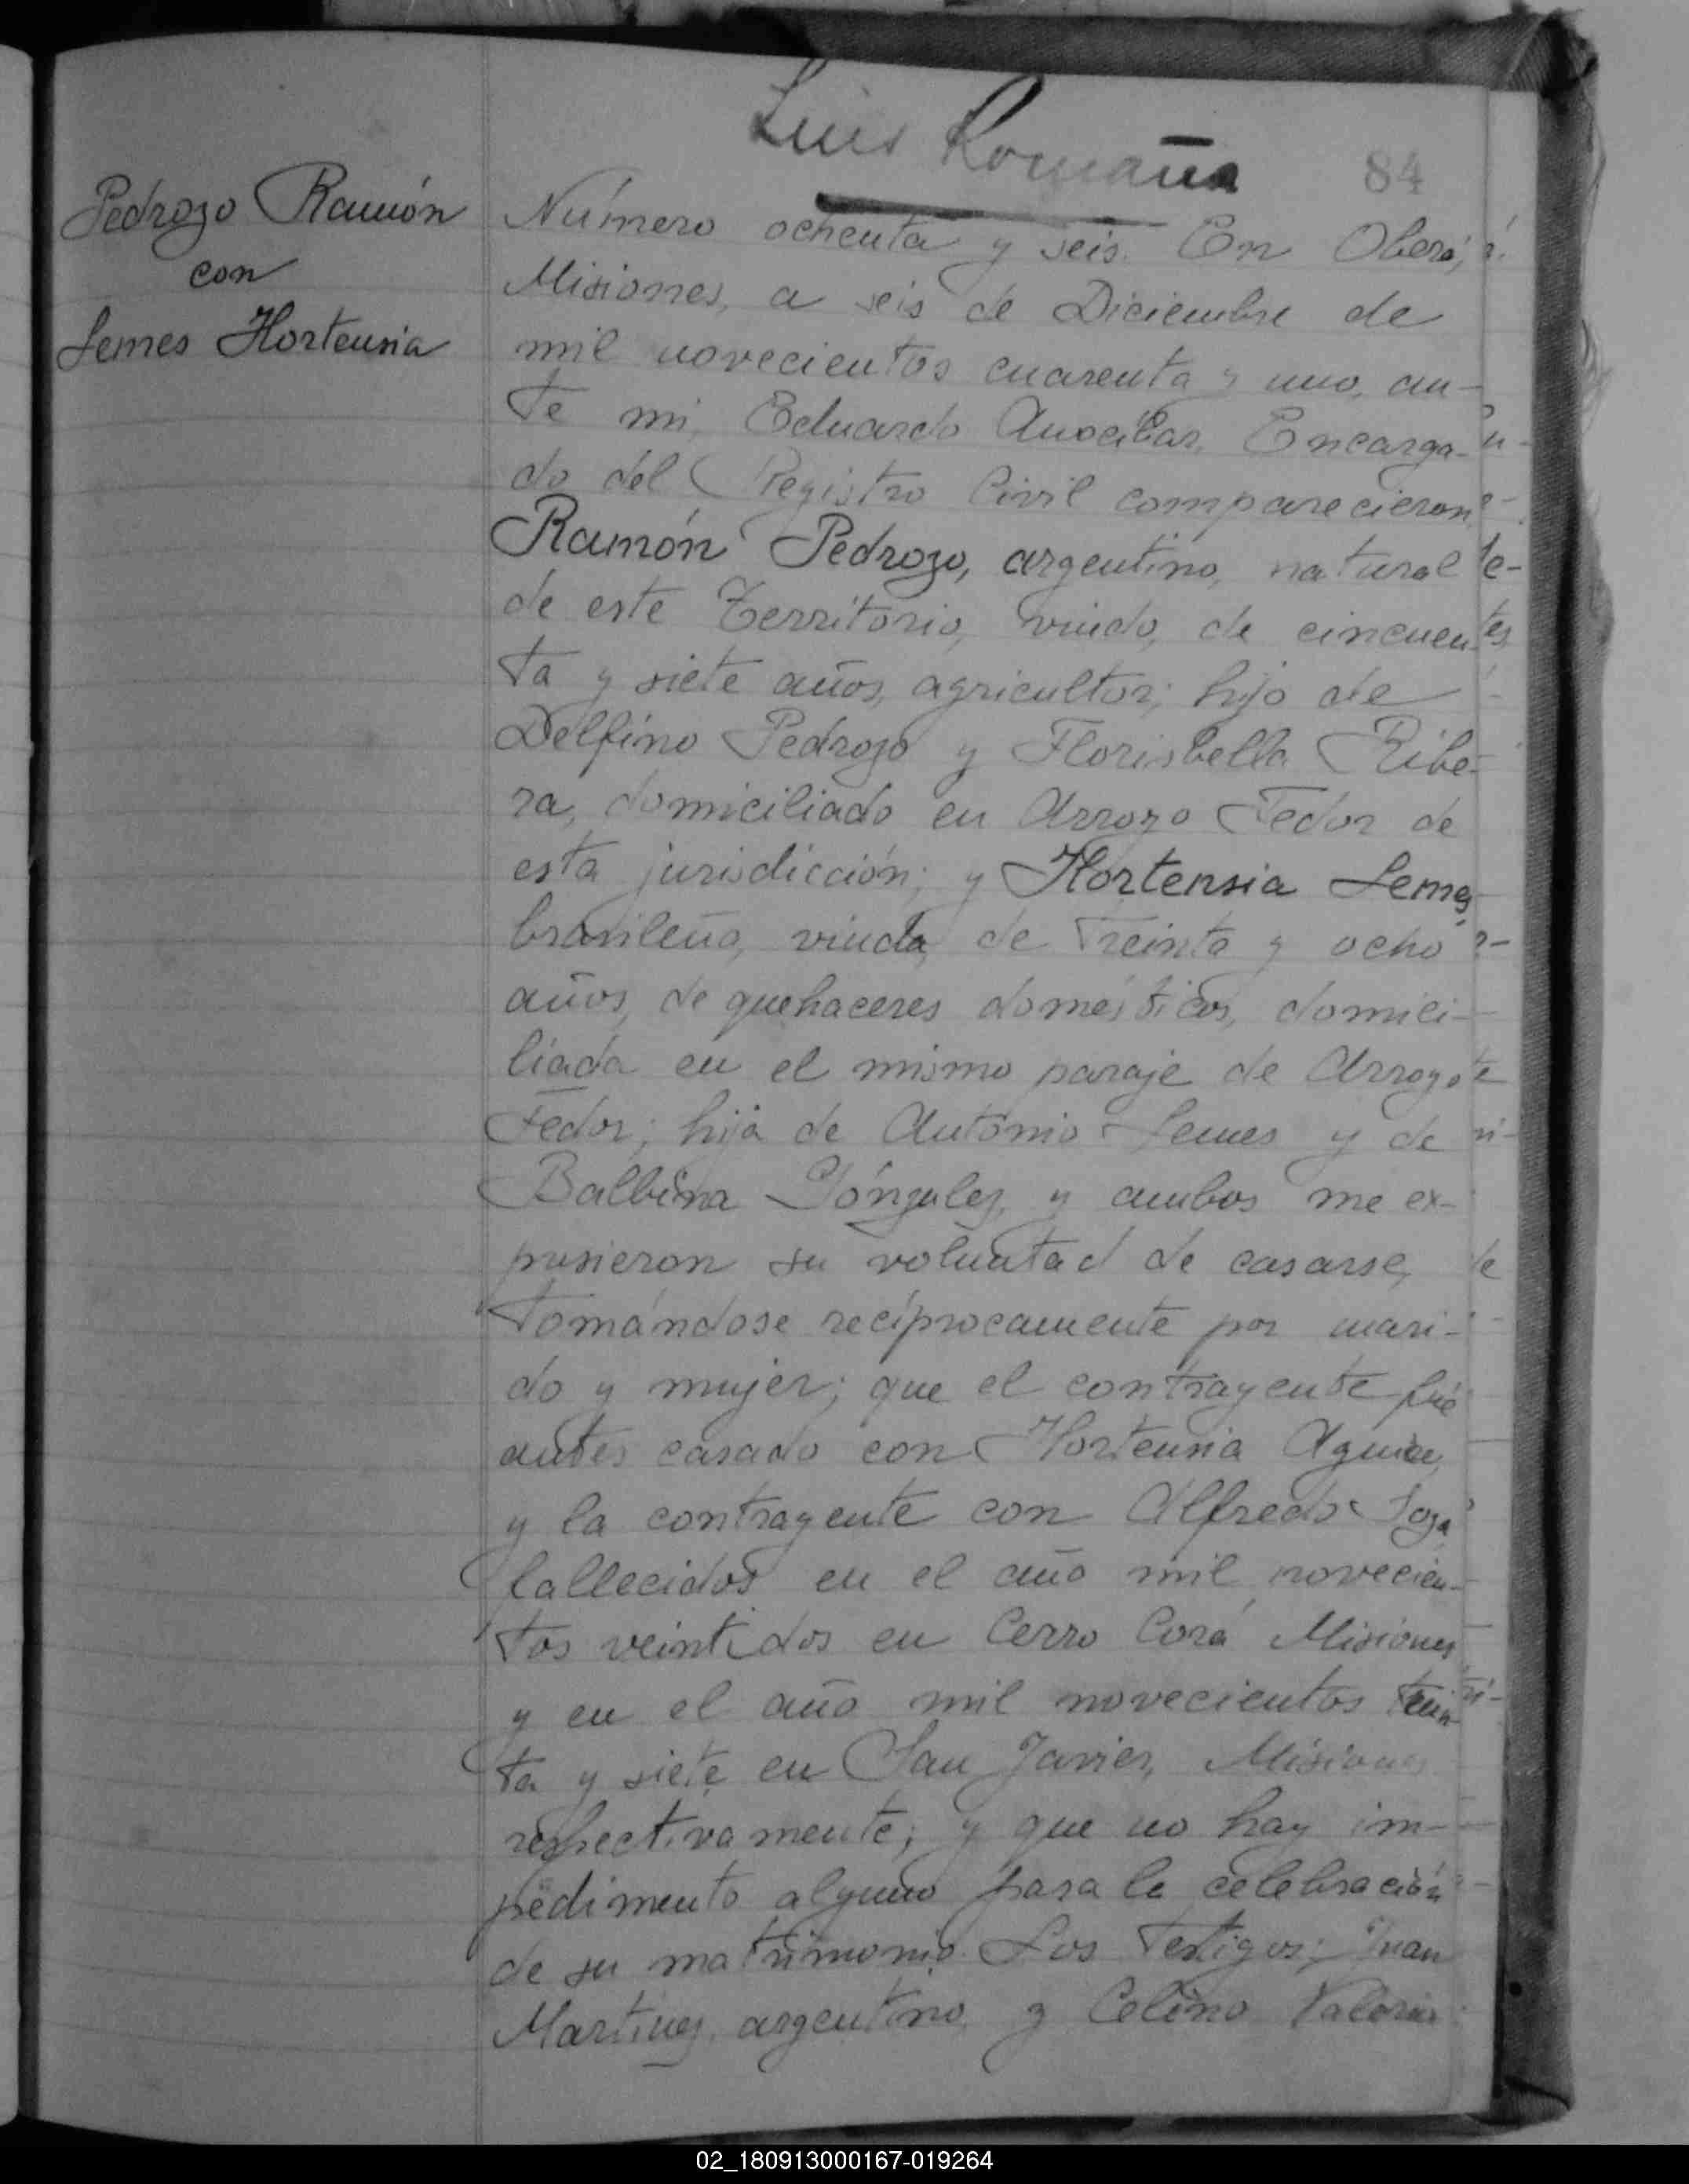 Luis Romaña
84
Pedrozo Ramón
con
Lemes Hortensia
Número ochenta y seis. En Oberá,
Misiones, a seis de Diciembre de
mil novecientos cuarenta y uno, an-
te mi, Eduardo Encarga-
do del Registro Civil comparecieron
Ramón Pedrozo, argentino, natural
de este Territorio, viudo, de cincuen-
ta y siete años, agricultor; hijo de
Delfino Pedrozo y Florisbella Ribe-
ra, domiciliado en Arroyo Fedor de
esta jurisdicción; y Hortensia Lemes,
brasileña, viuda, de treinta y ocho
años, de quehaceres domésticos, domici-
liada en el mismo paraje de Arroyo
Fedor; hija de Antonio Lemes y de
Balbina Gónzalez, y ambos me ex-
pusieron su voluntad de casarse,
tomándose recíprocamente por mari-
do y mujer; que el contrayente fué
antes casado con Hortensia
y la contrayente con Alfredo
fallecidos en el año mil novecien-
tos veintidos en Cerro Corá Misiones
y en el año mil novecientos trein-
ta y siete en San Javier, Misiones
respectivamente; y que no hay im-
pedimento alguno para la celebración
de su matrimonio. Los testigos; Juan
Martinez, argentino y Celino
02_180913000167-019264